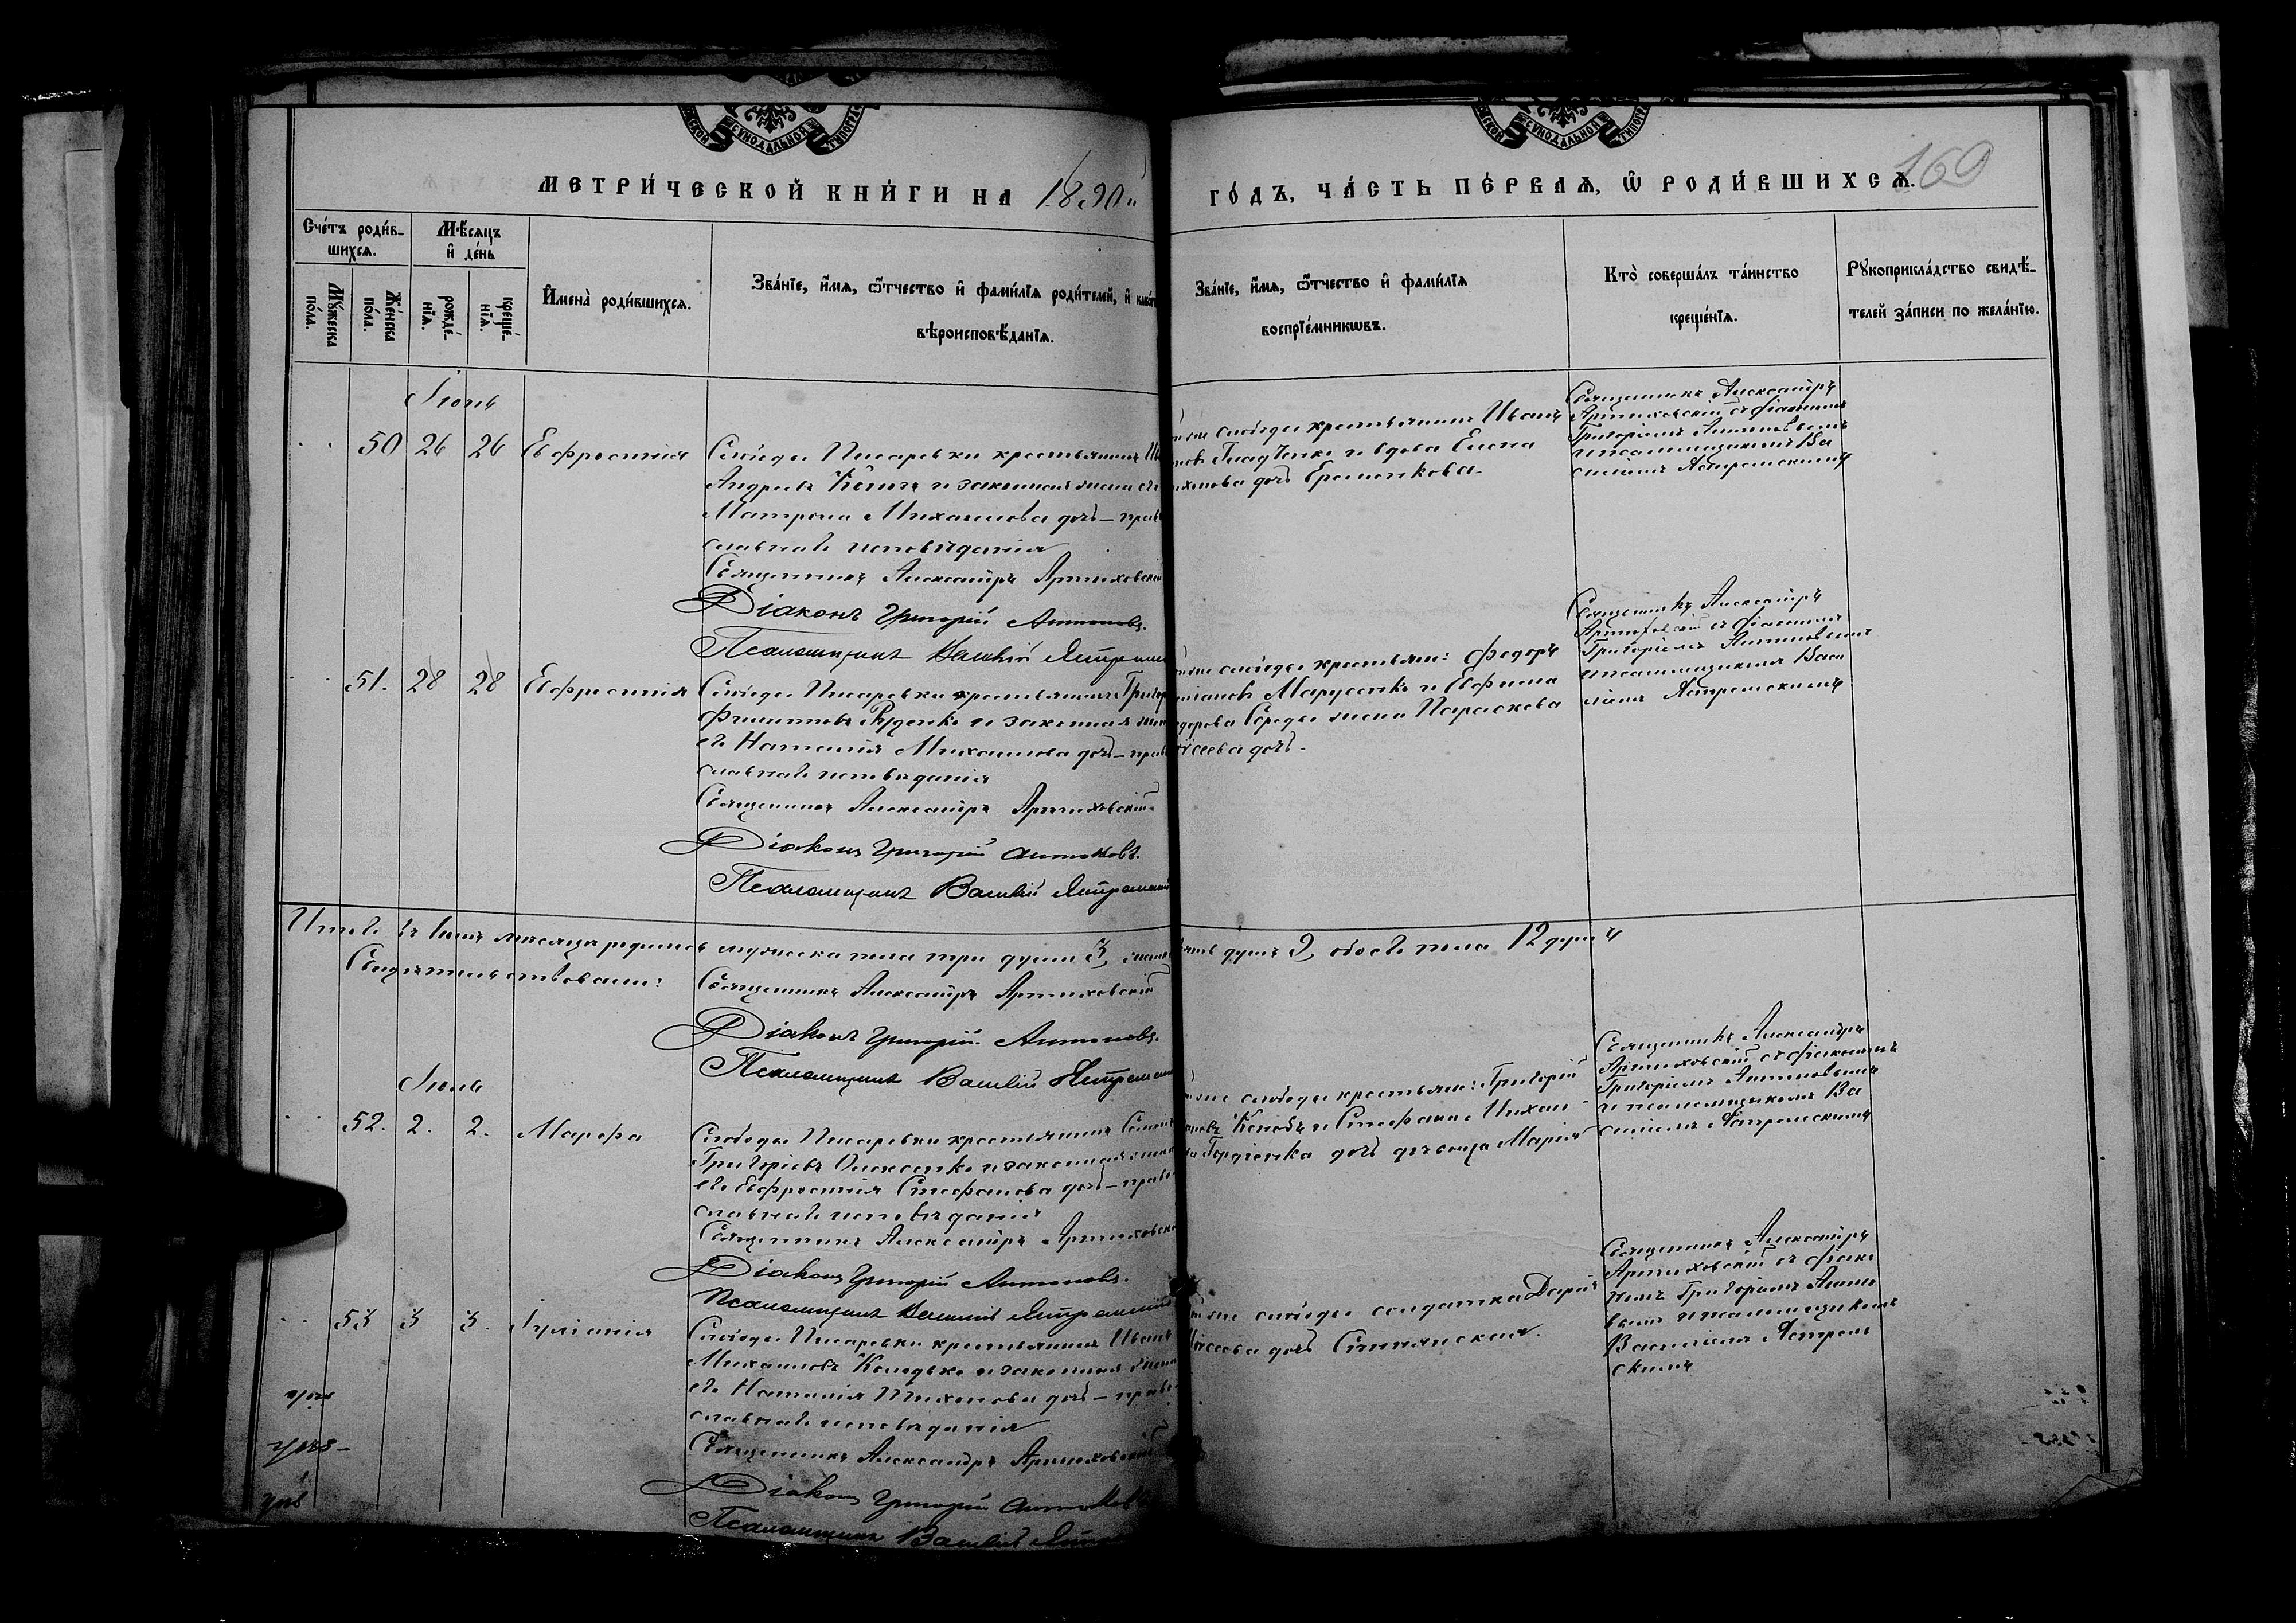 МЕТРИ́ЧЕСКОЙ КНИ́ГИ НА 1890 ГО́ДЪ, ЧА́СТЬ ПЕ́РВАѦ, Ѡ РОДИ́ВШИХСѦ. 169
Сче́тъ роди́в-
шихсѧ.
Мꙋ́жеска по́ла.
Же́нска по́ла.
Мѣ́сѧцъ и де́нь
рожде́-
нїѧ.
креще́-
нїѧ.
Имена̀ роди́вшихсѧ.
Зва́нїе, и́мѧ, ѻ́тчество и фами́лїѧ роди́телей, и
вѣроисповѣ́данїѧ.
Зва́нїе, и́мѧ, ѻ́тчество и фами́лїѧ
воспрїе́мникѡвъ.
Кто̀ соверша́лъ та́инство
креще́нїѧ.
Рꙋкоприкла́дство свидѣ́-
телей за́писи по жела́нїю.
Іюнь
50 26 26 Евфросинія
Слободы Писаревки крестьянинъ
Андреевъ и законная жена его
Матрона Михаилова дочь – право
славнаго исповѣданія
Священникъ Александръ Артюховскій
Діаконъ Григорій Антоновъ.
Псаломщикъ Василій Ястремскій
слободы крестьянинъ Иванъ
Гладченко и вдова Елена
дочь Еременкова
Священникъ Александръ
Артюховскій съ діакономъ
Григоріемъ Антоновымъ
и псаломщикомъ Ва
силіемъ Ястремскимъ
51. 28 28 Евфросинія
Слободы Писаревки крестьянинъ Григорій
Филипповъ Руденко и законная жена
его Наталія Михаилова дочь – право
славнаго исповѣданія
Священникъ Александръ Артюховскій
Діаконъ Григорій Антоновъ.
Псаломщикъ Василій Ястремскій
слободы крестьяне: Федоръ
Марусенко и Евфима
Середы жена Параскева
дочь.
Священникъ Александръ
Артюховскій съ діакономъ
Григоріемъ Антоновымъ
и псаломщикомъ Васи
ліемъ Ястремскимъ
Итого въ Іюнѣ мѣсяцѣ родилось мужеска пола три души 3, душъ 9, обоего пола 12 душъ
Свидѣтельствовали:
Священникъ Александръ Артюховскій
Діаконъ Григорій Антоновъ.
Псаломщикъ Василій Ястремскій
Іюль
52. 2. 2. Марфа
Слободы Писаревки крестьянинъ
Григоріевъ Олексенко и законная жена
его Евфросинія Стефанова дочь – право
славнаго исповѣданія
Священникъ Александръ Артюховскій
Діаконъ Григорій Антоновъ.
Псаломщикъ Василій Ястремскій
слободы крестьяне: Григорій
и Стефана Михаи
Гордіенка дочь дѣвица Марія
Священникъ Александръ
Артюховскій съ діакономъ
Григоріемъ Антоновымъ
и псаломщикомъ Ва
силіемъ Ястремскимъ
53 3 3. Іуліанія
Слободы Писаревки крестьянинъ Иванъ
Михаиловъ и законная жена
его Наталія Тихонова дочь – право
славнаго исповѣданія
Священникъ Александръ Артюховскій
Діаконъ Григорій Антоновъ
Псаломщикъ Василій
слободы солдатка Дарія
дочь
Священникъ Александръ
Артюховскій съ діако
номъ Григоріемъ Антоно
вымъ и псаломщикомъ
Василіемъ Ястрем
скимъ